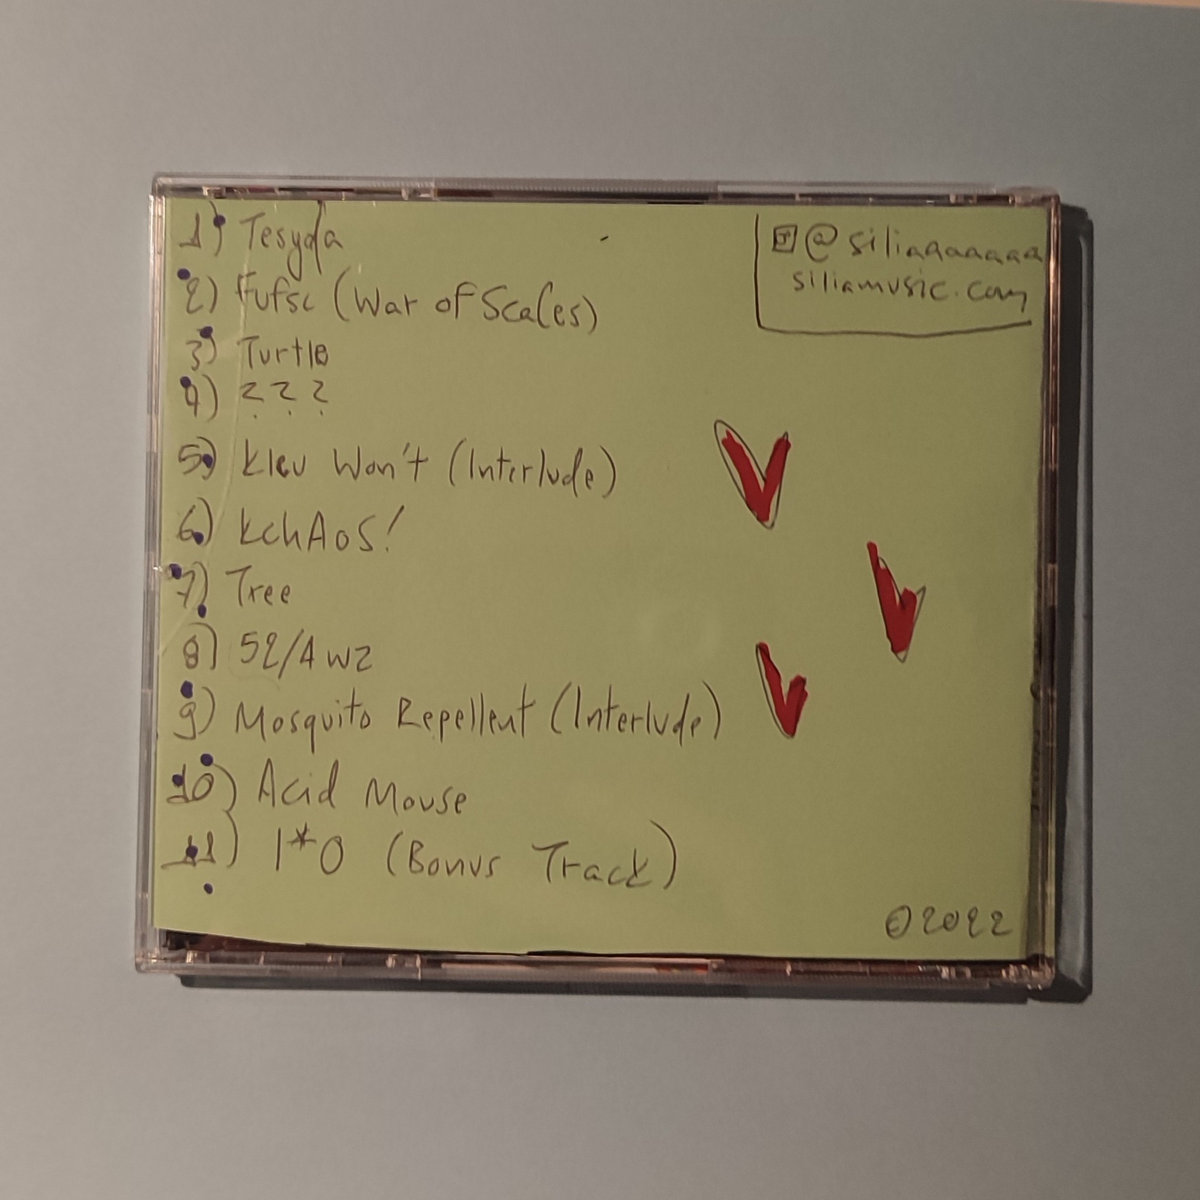 1) Tesyda
2) Fufsc (War of Scales)
3) Turtle
4) ???
5) Kleu Won't (Interlude)
6) KchAoS!
7) Tree
8) 52/4 WZ
9) Mosquito Repellent (Interlude)
10) Acid Mouse
11) 1*0 (Bonus Track)
@siliaaaaaaa
siliamusic.com
©2022